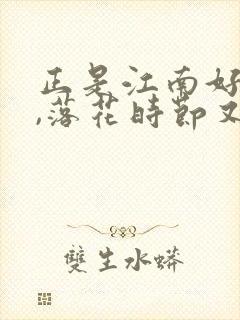 正是江南好
,落花時節又
雙生水蟒